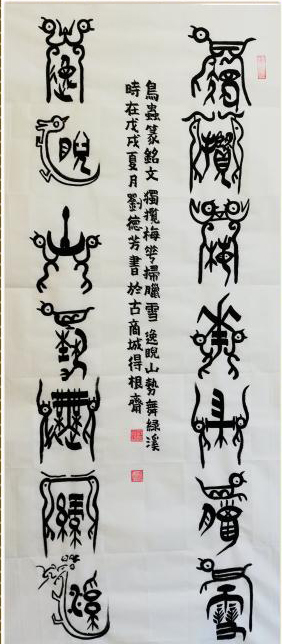 獨攬梅華掃臘雪
鳥蟲篆銘文 獨攬梅華掃臘雪 逸睨山勢舞綠溪
時在戊戌夏月劉德芳書於古商城得根齋
逸睨山勢舞綠溪